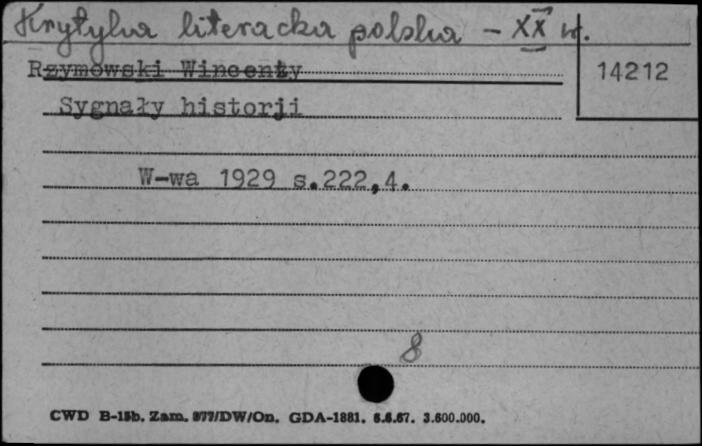 Krytyka literacka polska - XX w.
Rzymowski Wincenty
14212
Sygnały historji
W-wa 1929 s.222,4.
8
CWD B-15b. Zam. 877/DW/On. GDA-1881. 6.6.67. 3.600.000.